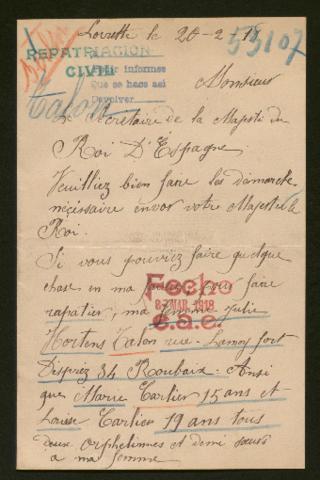 Lorette le 20-2-18
53107
REPATRIACION
CIVIL
Pedir informes
Que se hace asi
Devolver
Talon
Monsieur
Le Secrétaire de la Majesté du
Roi D'Espagne.
Veuilliez bien faire les démarche
nécessaire envor votre Majesté le
Roi.
Si vous pouviez faire quelque
chose en ma faveur pour faire
rapatier, ma femme Julie
Fecho
2 MAR. 1918
C.a.e.
Hortens Talon rue Lannoy fort
Desprez 34 Roubaix. Ansi
que Marie Carlier 15 ans et
Louise Carlier 19 ans tous
deux orphelinnes et demi sœurs
a ma femme